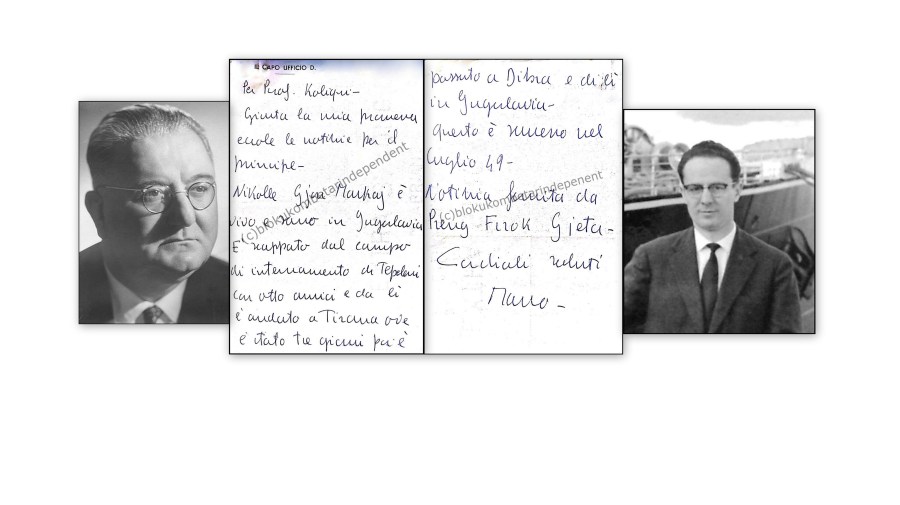 IL CAPO UFFICIO D.
Per Prof. Koliqui-
Giusta la mia promessa
eccole le notizie per il
principe-
Nikolle Gjon Markaj è
vivo e sano in Jugoslavia
E' scappato dal campo
di internamento di Tepeleni
con otto amici e da lì
è andato a Tirana ove
è stato tre giorni poi è
passato a Dibra e di lì
in Jugoslavia-
questo è successo nel
luglio 49-
Notizia fornita da
Preng Firok Gjeta-
Cordiali saluti
(c)blokukomfetarindependent
(c)blokukomfetarindepenent